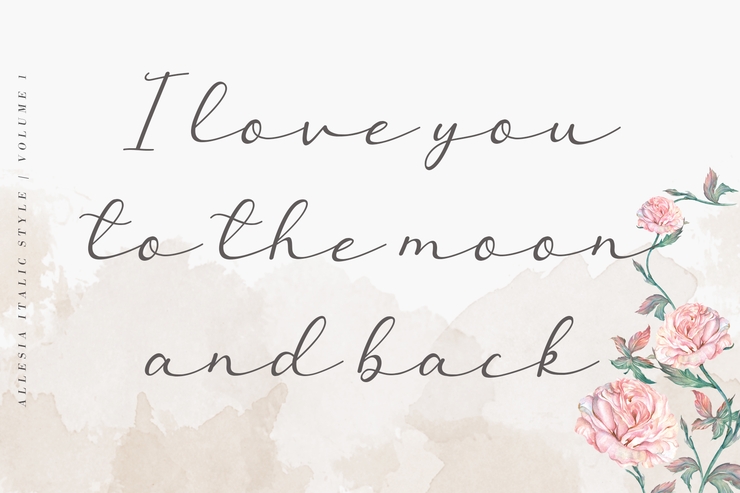 I love you
to the moon
and back
ALLESIA ITALIC STYLE | VOLUME 1